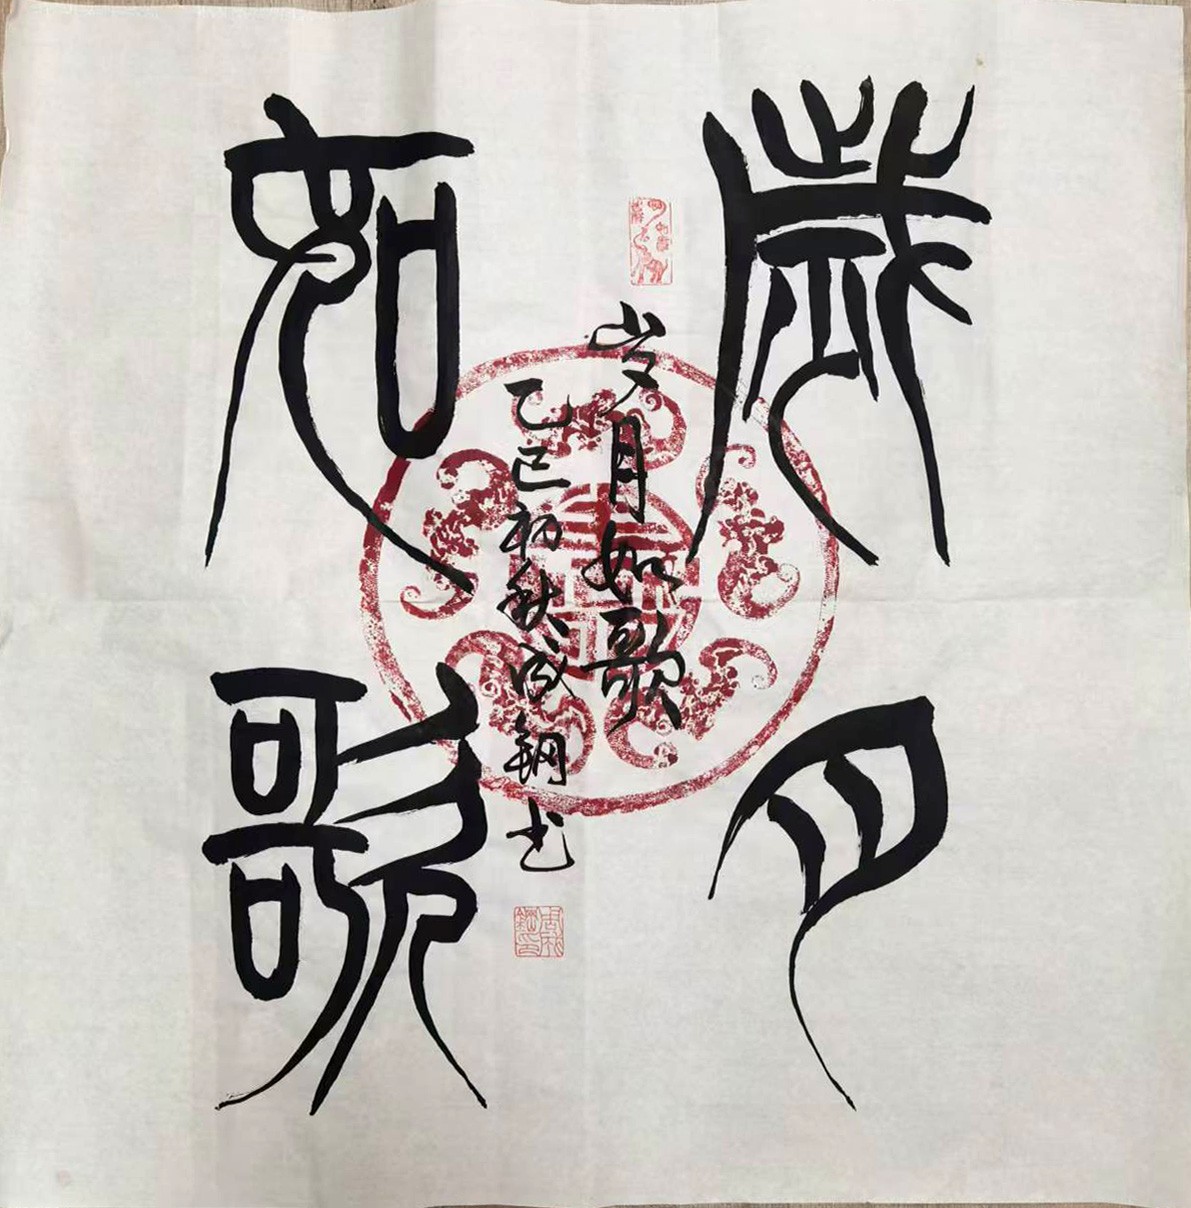 歲月
如歌
岁月如歌
乙巳初秋成钢书